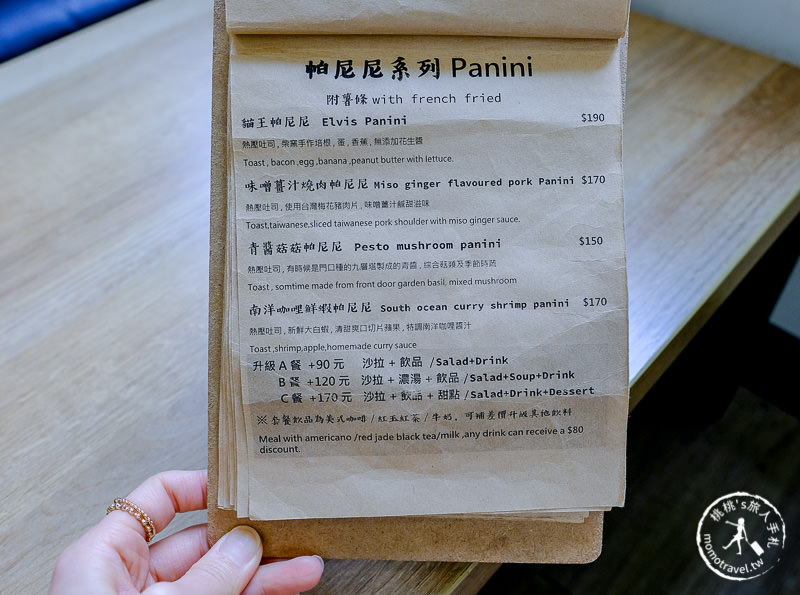 帕尼尼系列 Panini
附薯條 with french fried
貓王帕尼尼 Elvis Panini $190
熱壓吐司,柴窯手作培根,蛋,香蕉,無添加花生醬
Toast, bacon,egg,banana,peanut butter with lettuce.
味噌薑汁燒肉帕尼尼 Miso ginger flavoured pork Panini $170
熱壓吐司,使用台灣梅花豬肉片,味噌薑汁鹹甜滋味
Toast,taiwanese,sliced taiwanese pork shoulder with miso ginger sauce.
青醬菇菇帕尼尼 Pesto mushroom panini $150
熱壓吐司,有時候是門口種的九層塔製成的青醬,綜合菇類及季節時蔬
Toast, somtime made from front door garden basil, mixed mushroom
南洋咖哩鮮蝦帕尼尼 South ocean curry shrimp panini $170
熱壓吐司,新鮮大白蝦,清甜爽口切片蘋果,特調南洋咖哩醬汁
Toast,shrimp,apple,homemade curry sauce
升級 A 餐 +90 元 沙拉 + 飲品 /Salad+Drink
B 餐 +120 元 沙拉 + 濃湯 + 飲品 /Salad+Soup+Drink
C 餐 +170 元 沙拉 + 飲品 + 甜點 /Salad+Drink+Dessert
※ 套餐飲品為美式咖啡 / 紅玉紅茶 / 牛奶,可補差價升級其他飲料
Meal with americano /red jade black tea/milk ,any drink can receive a $80
discount.
桃桃's旅人手札
momotravel.tw